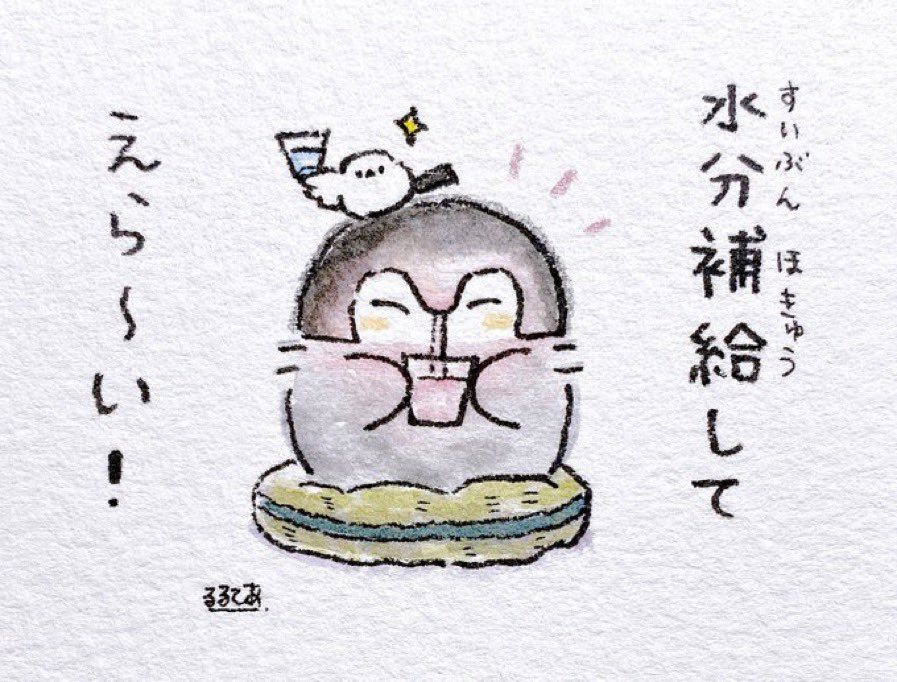 水分補給して
すいぶん ほきゅう
えら〜い!
るるてあ